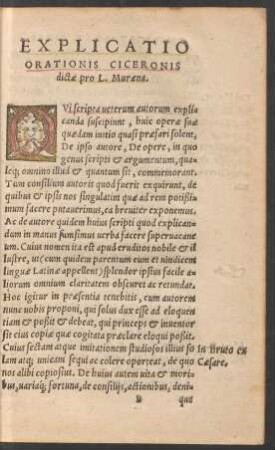 EXPLICATIO
ORATIONIS CICERONIS
dictæ pro L. Muræna.
QVi scripta ueterum autorum expli
canda suscipiunt, huic operæ suæ
quædam initio quasi præfari solent,
De ipso autore, De opere, in quo
genus scripti & argumentum, qua-
leq; omnino illud & quantum sit, commemorant.
Tum consilium autoris quod fuerit exquirunt, de
quibus & ipsis nos singulatim quæ ad rem potißi-
mum facere putauerimus, ea breuiter exponemus.
Ac de autore quidem huius scripti quod explican-
dum in manus sumsimus uerba facere superuacane
um. Cuius nomen ita est apud eruditos nobile & il
lustre, ut (cum quidem parentum eum et uindicem
linguæ Latinæ appellent) splendor ipsius facile a-
liorum omnium claritatem obscuret ac retundat.
Hoc igitur in præsentia tenebitis, cum autorem
nunc uobis proponi, qui solus dux esse ad eloquen
tiam & poßit & debeat, qui princeps & inuentor
sit eius copiæ quæ cogitata præclare eloqui poßit.
Cuius sectam atque imitationem studiosos illius so In Bruto ex
lam atq; unicam sequi ac colere oportet, de quo Cæsare.
nos alibi copiosius. De huius autem uita & mori
bus, uariaq; fortuna, de consilijs, actionibus, deni-
B que